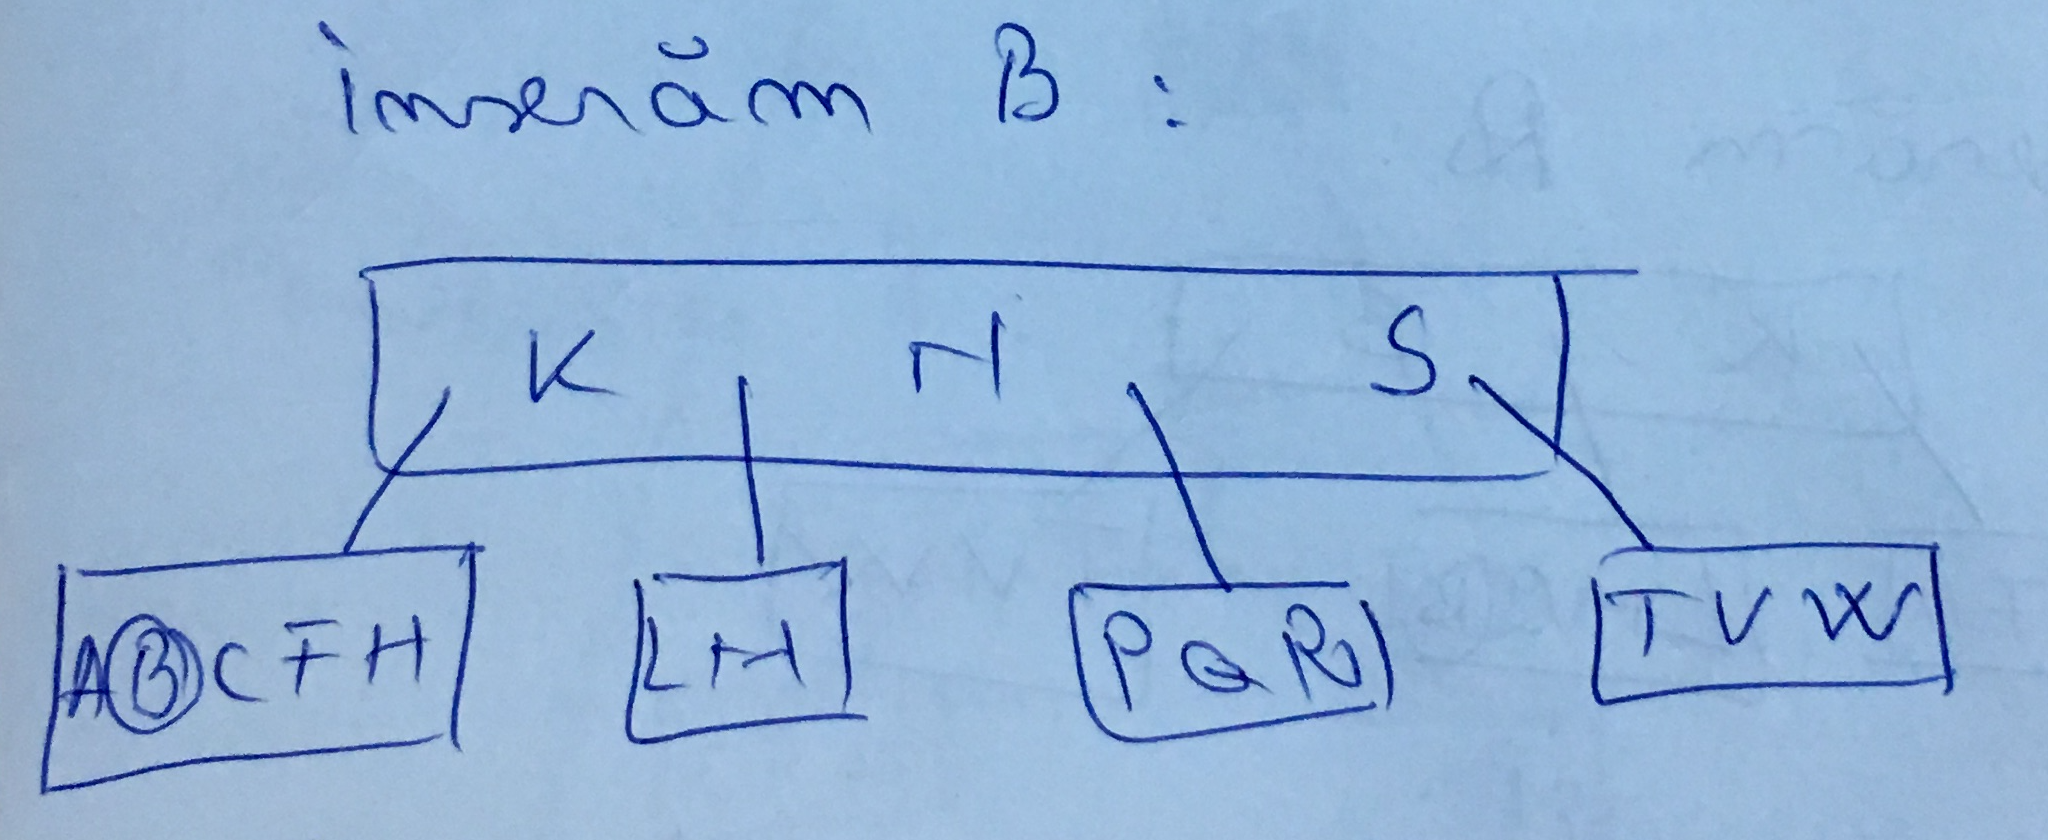 Inserăm B :
K N S
A B C F H L M P Q R T V W